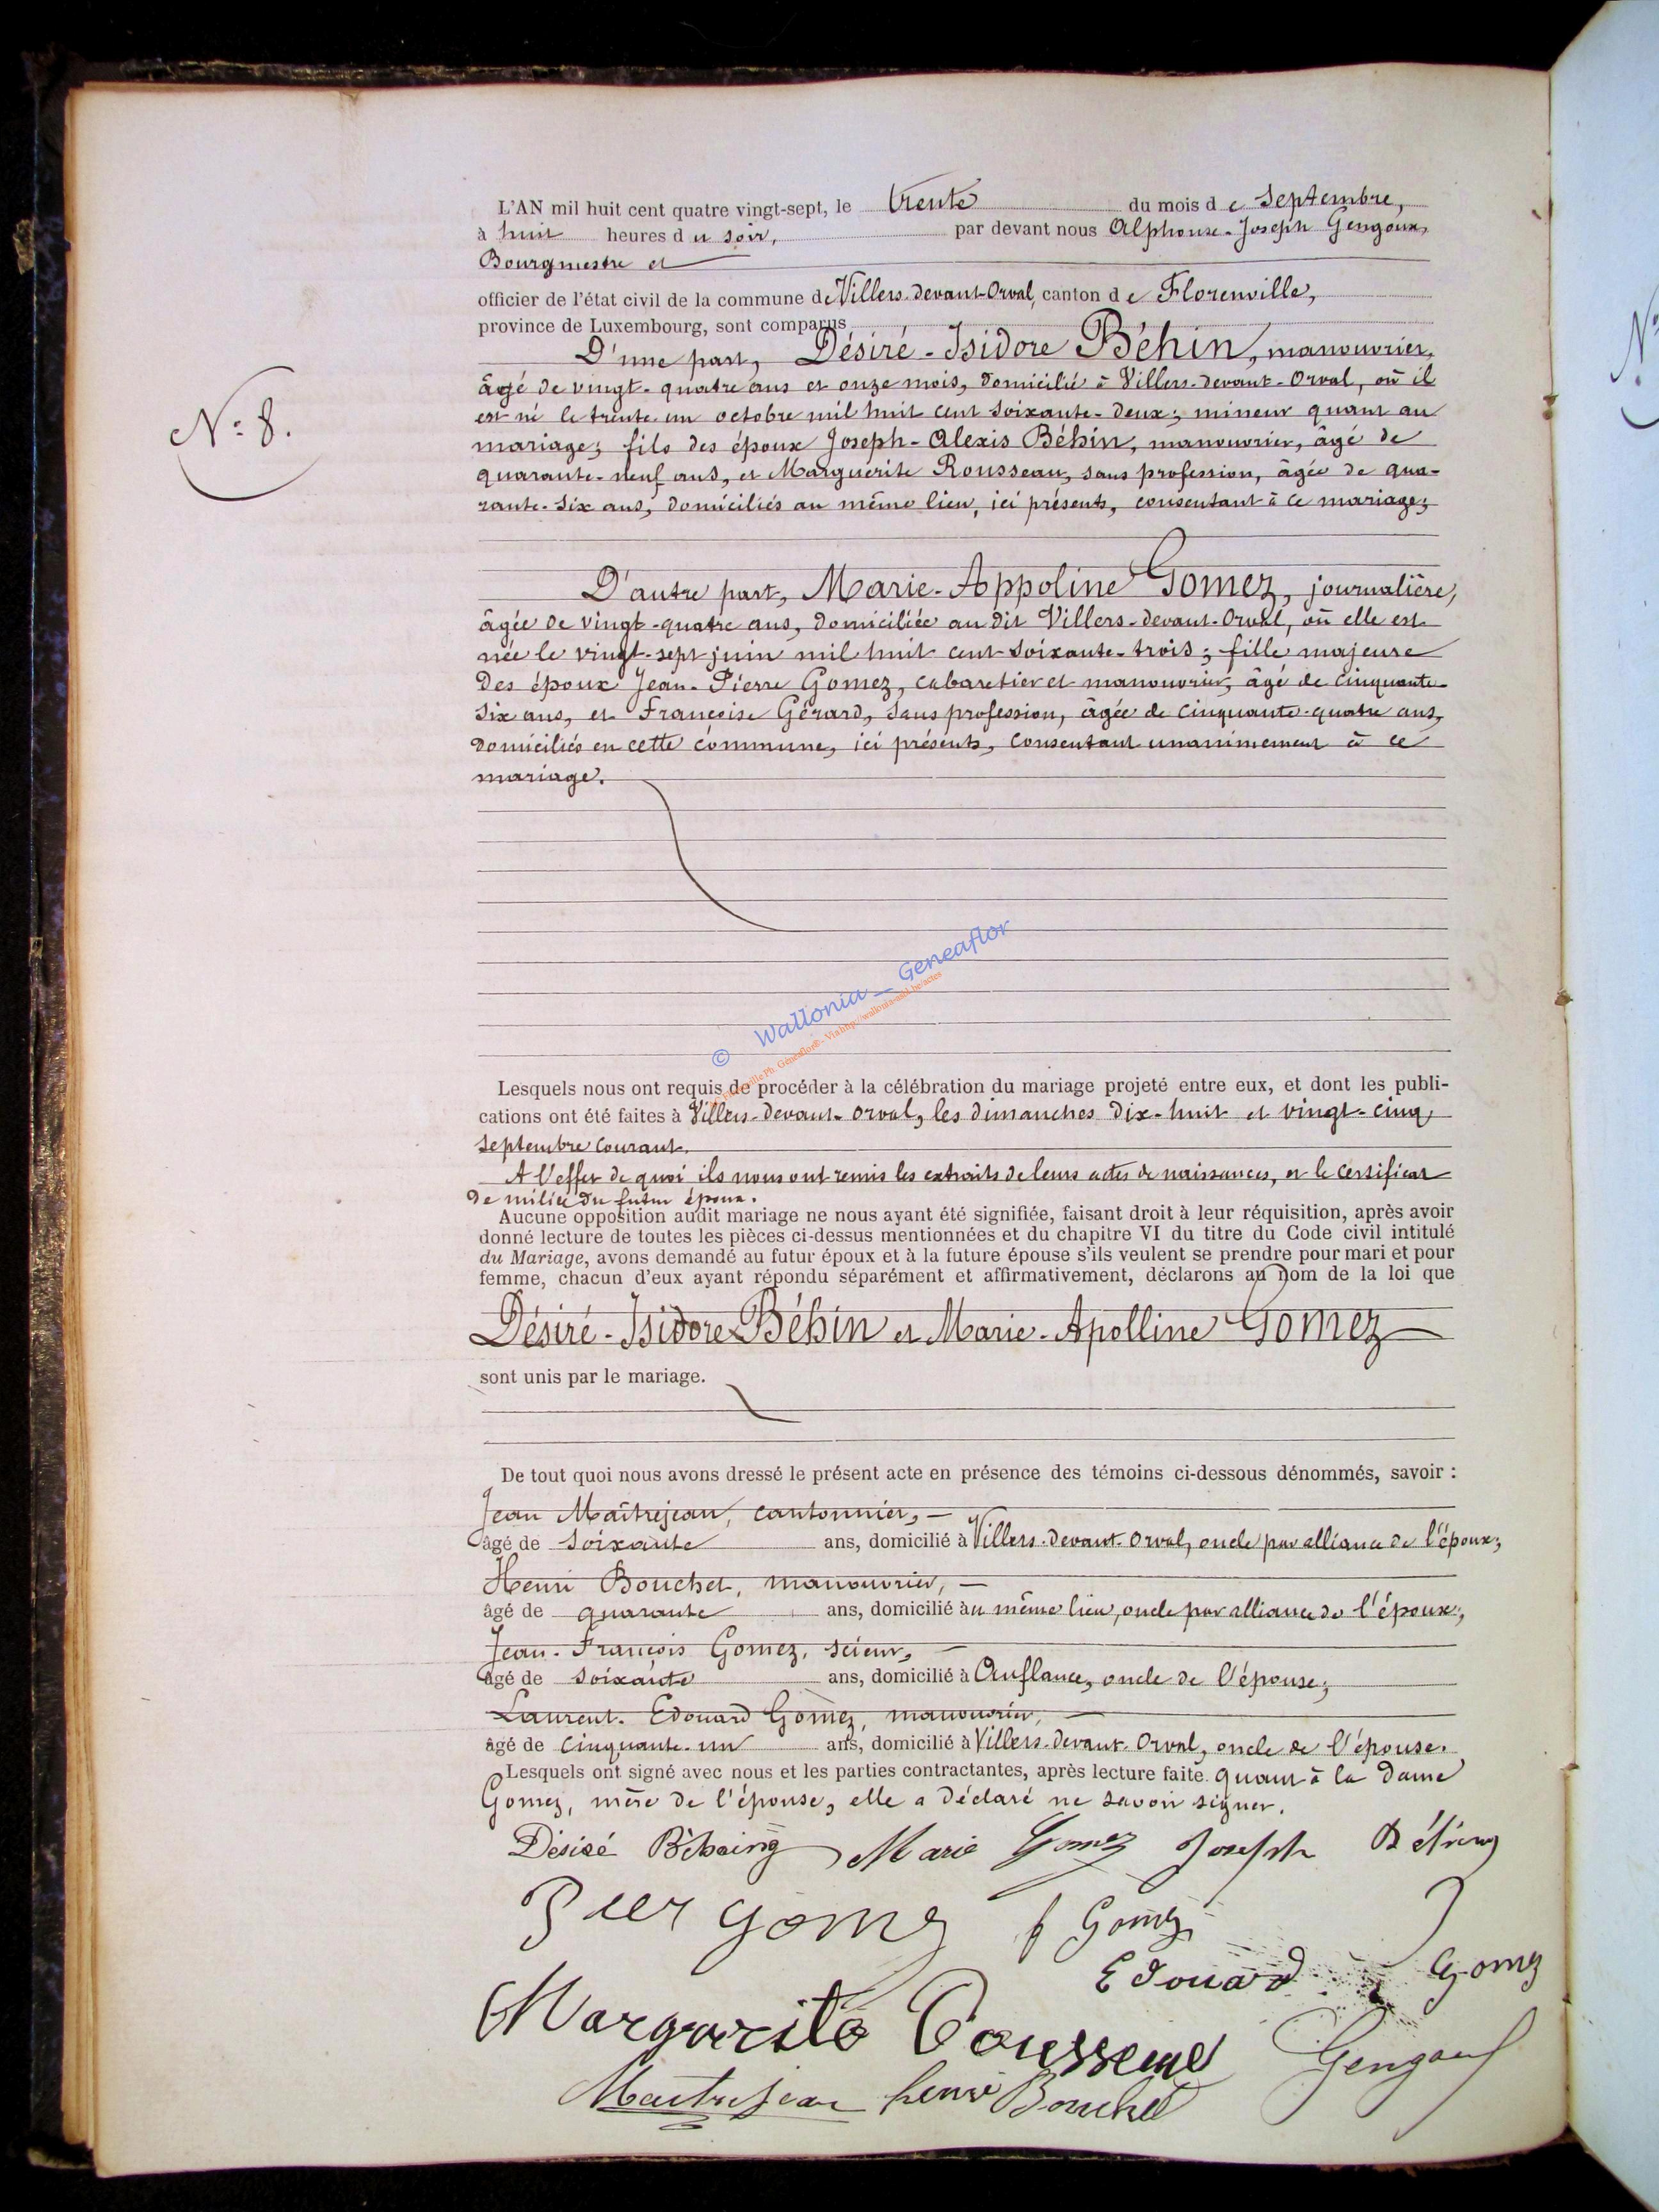 L'AN mil huit cent quatre vingt-sept, le trente du mois de Septembre,
à huit heures du soir, par devant nous Alphonse-Joseph Gengoux,
Bourgmestre et
officier de l'état civil de la commune de Villers-devant-Orval, canton de Florenville,
province de Luxembourg, sont comparus
D'une part, Désiré-Isidore Béhin, manouvrier,
âgé de vingt-quatre ans et onze mois, domicilié à Villers-devant-Orval, où il
est né le trente un octobre mil huit cent soixante-deux; mineur quant au
mariage; fils des époux Joseph-Alexis Béhin, manouvrier, âgé de
quarante-neuf ans, et Marguerite Rousseau, sans profession, âgée de qua-
rante-six ans, domiciliés au même lieu, ici présents, consentant à ce mariage;
N° 8.
D'autre part, Marie-Appoline Gomez, journalière,
âgée de vingt-quatre ans, domiciliée au dit Villers-devant-Orval, où elle est
née le vingt-sept juin mil huit cent soixante-trois; fille majeure
des époux Jean-Pierre Gomez, cabaretier et manouvrier, âgé de cinquante-
six ans, et Françoise Gérard, sans profession, âgée de cinquante-quatre ans,
domiciliés en cette commune, ici présents, consentant unanimement à ce
mariage.
© Wallonia _ Geneaflor
Lesquels nous ont requis de procéder à la célébration du mariage projeté entre eux, et dont les publi-
cations ont été faites à Villers-devant-Orval, les dimanches dix-huit et vingt-cinq
septembre courant.
A l'effet de quoi ils nous ont remis les extraits de leurs actes de naissances, et le certificat
de milice du futur époux.
Aucune opposition audit mariage ne nous ayant été signifiée, faisant droit à leur réquisition, après avoir
donné lecture de toutes les pièces ci-dessus mentionnées et du chapitre VI du titre du Code civil intitulé
du Mariage, avons demandé au futur époux et à la future épouse s'ils veulent se prendre pour mari et pour
femme, chacun d'eux ayant répondu séparément et affirmativement, déclarons au nom de la loi que
Désiré-Isidore Béhin et Marie-Apolline Gomez
sont unis par le mariage.
De tout quoi nous avons dressé le présent acte en présence des témoins ci-dessous dénommés, savoir :
Jean Maîtrejean, cantonnier,
âgé de soixante ans, domicilié à Villers-devant-Orval, oncle par alliance de l'époux;
Henri Bouchet, manouvrier,
âgé de quarante ans, domicilié au même lieu, oncle par alliance de l'époux;
Jean-François Gomez, scieur,
âgé de soixante ans, domicilié à Auflance, oncle de l'épouse;
Laurent-Edouard Gomez, manouvrier,
âgé de cinquante-un ans, domicilié à Villers-devant-Orval, oncle de l'épouse.
Lesquels ont signé avec nous et les parties contractantes, après lecture faite. quant à la dame
Gomez, mère de l'épouse, elle a déclaré ne savoir signer.
Désiré Béhaing Marie Gomez Joseph
gomez f Gomez
Edouard Gomez
Marguerite Gengoux
Maitrejean henri Bouchet